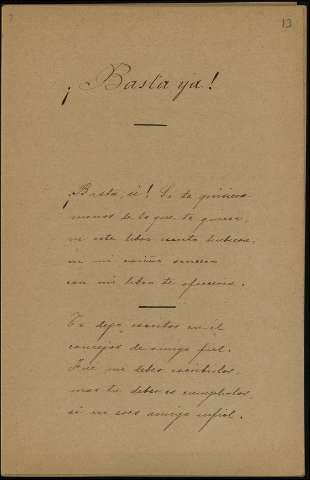 13
¡Basta ya!
¡Basta, sí! Si te quisiera
menos de lo que te quiero,
ni este libro escrito hubiera,
ni mi cariño sincero
con mi libro te ofreciera.
Te dejo escritos en él
consejos de amigo fiel.
Fue mi deber escribirlos,
mas tu deber es cumplirlos,
si no eres amigo infiel.